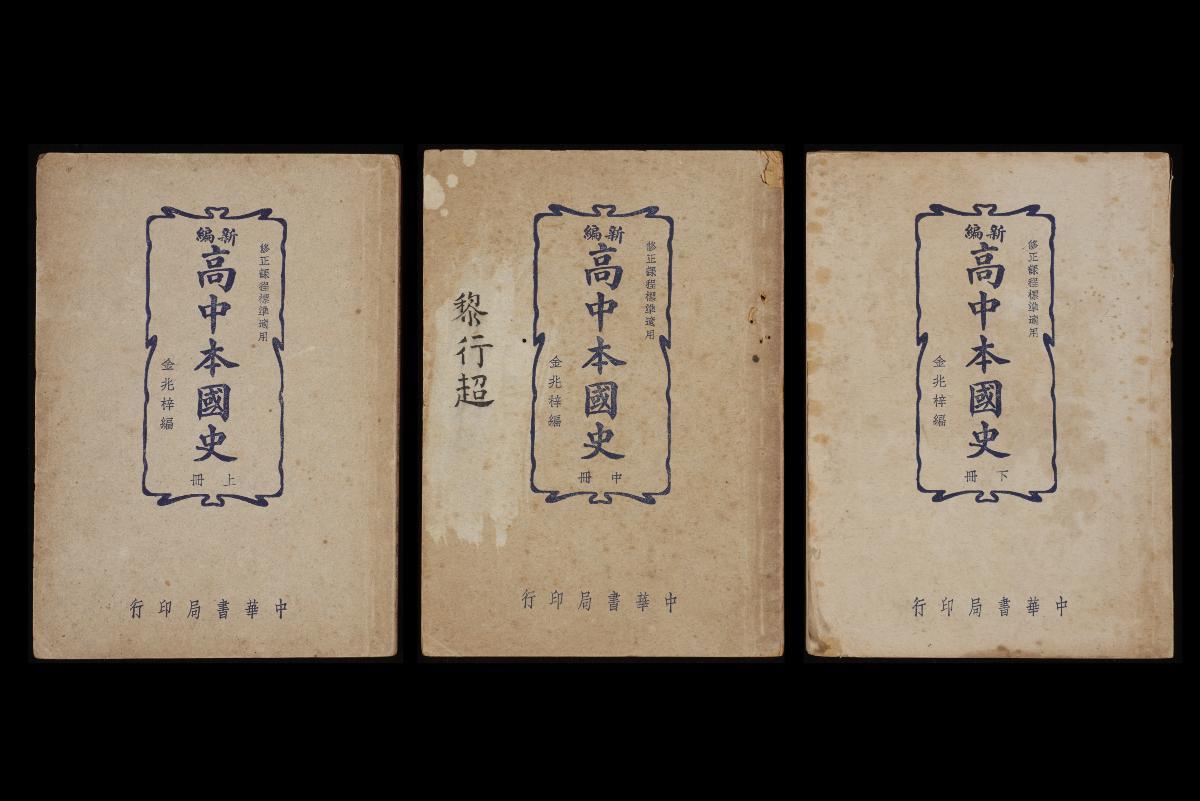 新編
修正課程標準適用
高中本國史
金兆梓編
上冊
中華書局印行
新編
修正課程標準適用
高中本國史
金兆梓編
中冊
中華書局印行
黎行超
新編
修正課程標準適用
高中本國史
金兆梓編
下冊
中華書局印行